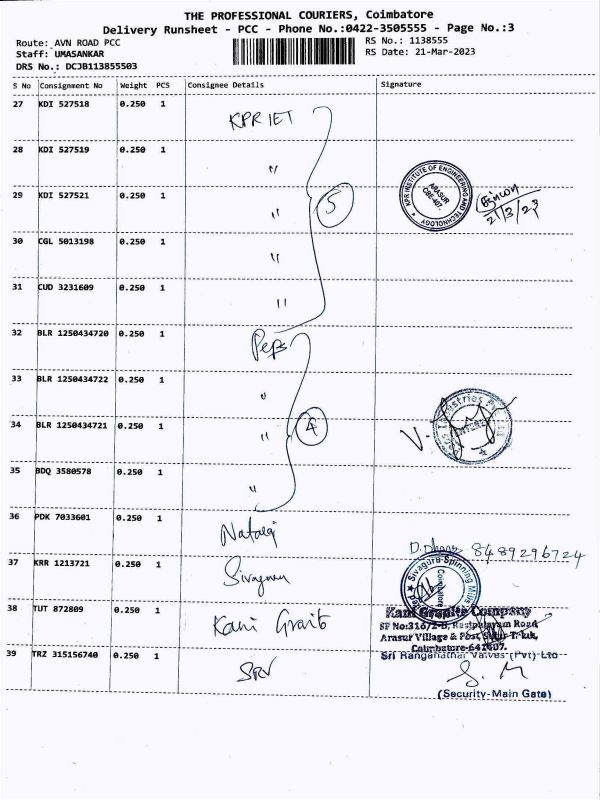 THE PROFESSIONAL COURIERS, Coimbatore
Delivery Runsheet - PCC - Phone No.:0422-3505555 - Page No.:3
Route: AVN ROAD PCC
RS No.: 1138555
Staff: UMASANKAR
RS Date: 21-Mar-2023
DRS No.: DCJB113855503
S No Consignment No Weight PCS Consignee Details Signature
27 KDI 527518 0.250 1 KPR IET
28 KDI 527519 0.250 1 "
KPR INSTITUTE OF ENGINEERING AND TECHNOLOGY
ARASUR
CBE-407.
29 KDI 527521 0.250 1 " 5
21/3/23
30 CGL 5013198 0.250 1 "
31 CUD 3231609 0.250 1 "
32 BLR 1250434720 0.250 1 Peps
33 BLR 1250434722 0.250 1 "
34 BLR 1250434721 0.250 1 " 4
35 BDQ 3580578 0.250 1 "
36 PDK 7033601 0.250 1
8489296724
37 KRR 1213721 0.250 1
Sivaguru Spinning Mills
Coimbatore
38 TUT 872809 0.250 1 Kani
Kani Granite Company
Arasur Village & Post,
Coimbatore-641407.
39 TRZ 315156740 0.250 1 SRV
Sri Ranganathar Valves (Pvt) Ltd
S. M
(Security-Main Gate)